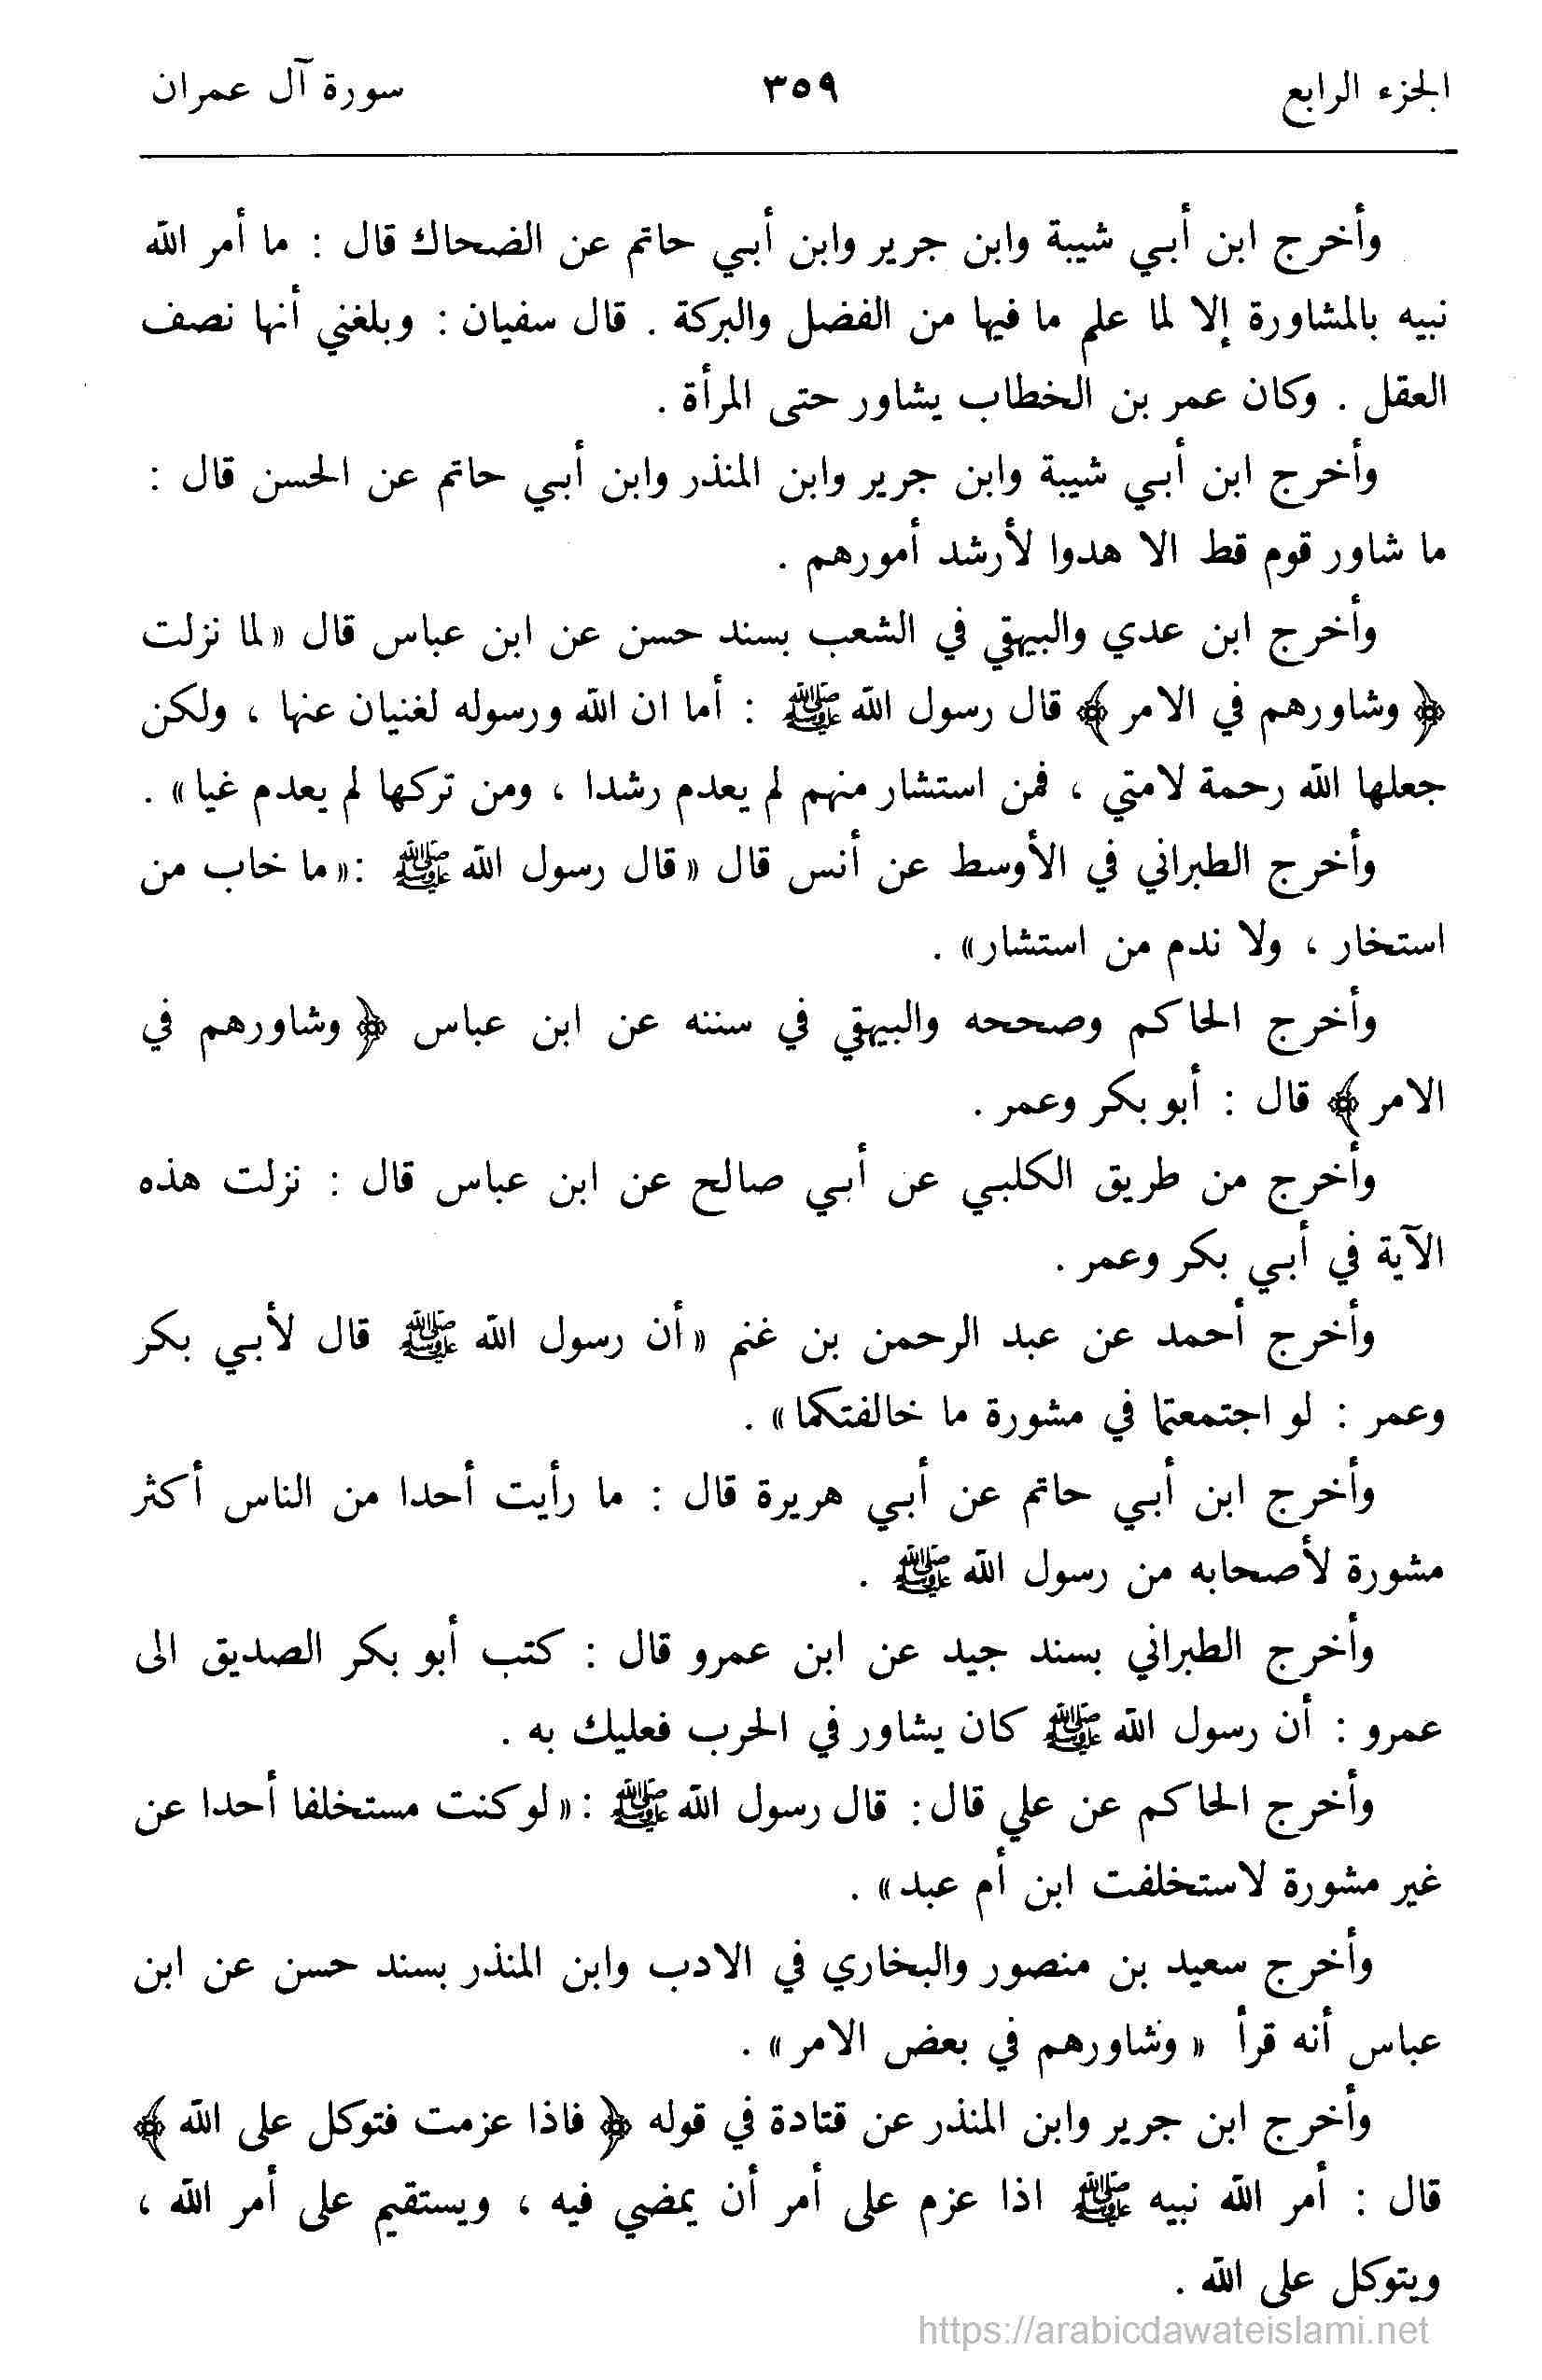 الجزء الرابع ٣٥٩ سورة آل عمران
وأخرج ابن أبي شيبة وابن جرير وابن أبي حاتم عن الضحاك قال : ما أمر الله
نبيه بالمشاورة إلا لما علم ما فيها من الفضل والبركة . قال سفيان : وبلغني أنها نصف
العقل . وكان عمر بن الخطاب يشاور حتى المرأة .
وأخرج ابن أبي شيبة وابن جرير وابن المنذر وابن أبي حاتم عن الحسن قال :
ما شاور قوم قط الا هدوا لأرشد أمورهم .
وأخرج ابن عدي والبيهقي في الشعب بسند حسن عن ابن عباس قال « لما نزلت
﴿ وشاورهم في الامر ﴾ قال رسول الله ﷺ : أما ان الله ورسوله لغنيان عنها ، ولكن
جعلها الله رحمة لامتي ، فمن استشار منهم لم يعدم رشدا ، ومن تركها لم يعدم غيا » .
وأخرج الطبراني في الأوسط عن أنس قال « قال رسول الله ﷺ :« ما خاب من
استخار ، ولا ندم من استشار » .
وأخرج الحاكم وصححه والبيهقي في سننه عن ابن عباس ﴿ وشاورهم في
الامر ﴾ قال : أبو بكر وعمر .
وأخرج من طريق الكلبي عن أبي صالح عن ابن عباس قال : نزلت هذه
الآية في أبي بكر وعمر .
وأخرج أحمد عن عبد الرحمن بن غنم « أن رسول الله ﷺ قال لأبي بكر
وعمر : لو اجتمعتما في مشورة ما خالفتكما » .
وأخرج ابن أبي حاتم عن أبي هريرة قال : ما رأيت أحدا من الناس أكثر
مشورة لأصحابه من رسول الله ﷺ .
وأخرج الطبراني بسند جيد عن ابن عمرو قال : كتب أبو بكر الصديق الى
عمرو : أن رسول الله ﷺ كان يشاور في الحرب فعليك به .
وأخرج الحاكم عن علي قال : قال رسول الله ﷺ :« لو كنت مستخلفا أحدا عن
غير مشورة لاستخلفت ابن أم عبد » .
وأخرج سعيد بن منصور والبخاري في الادب وابن المنذر بسند حسن عن ابن
عباس أنه قرأ « وشاورهم في بعض الامر » .
وأخرج ابن جرير وابن المنذر عن قتادة في قوله ﴿ فاذا عزمت فتوكل على الله ﴾
قال : أمر الله نبيه ﷺ اذا عزم على أمر أن يمضي فيه ، ويستقيم على أمر الله ،
ويتوكل على الله .
https://arabicdawateislami.net